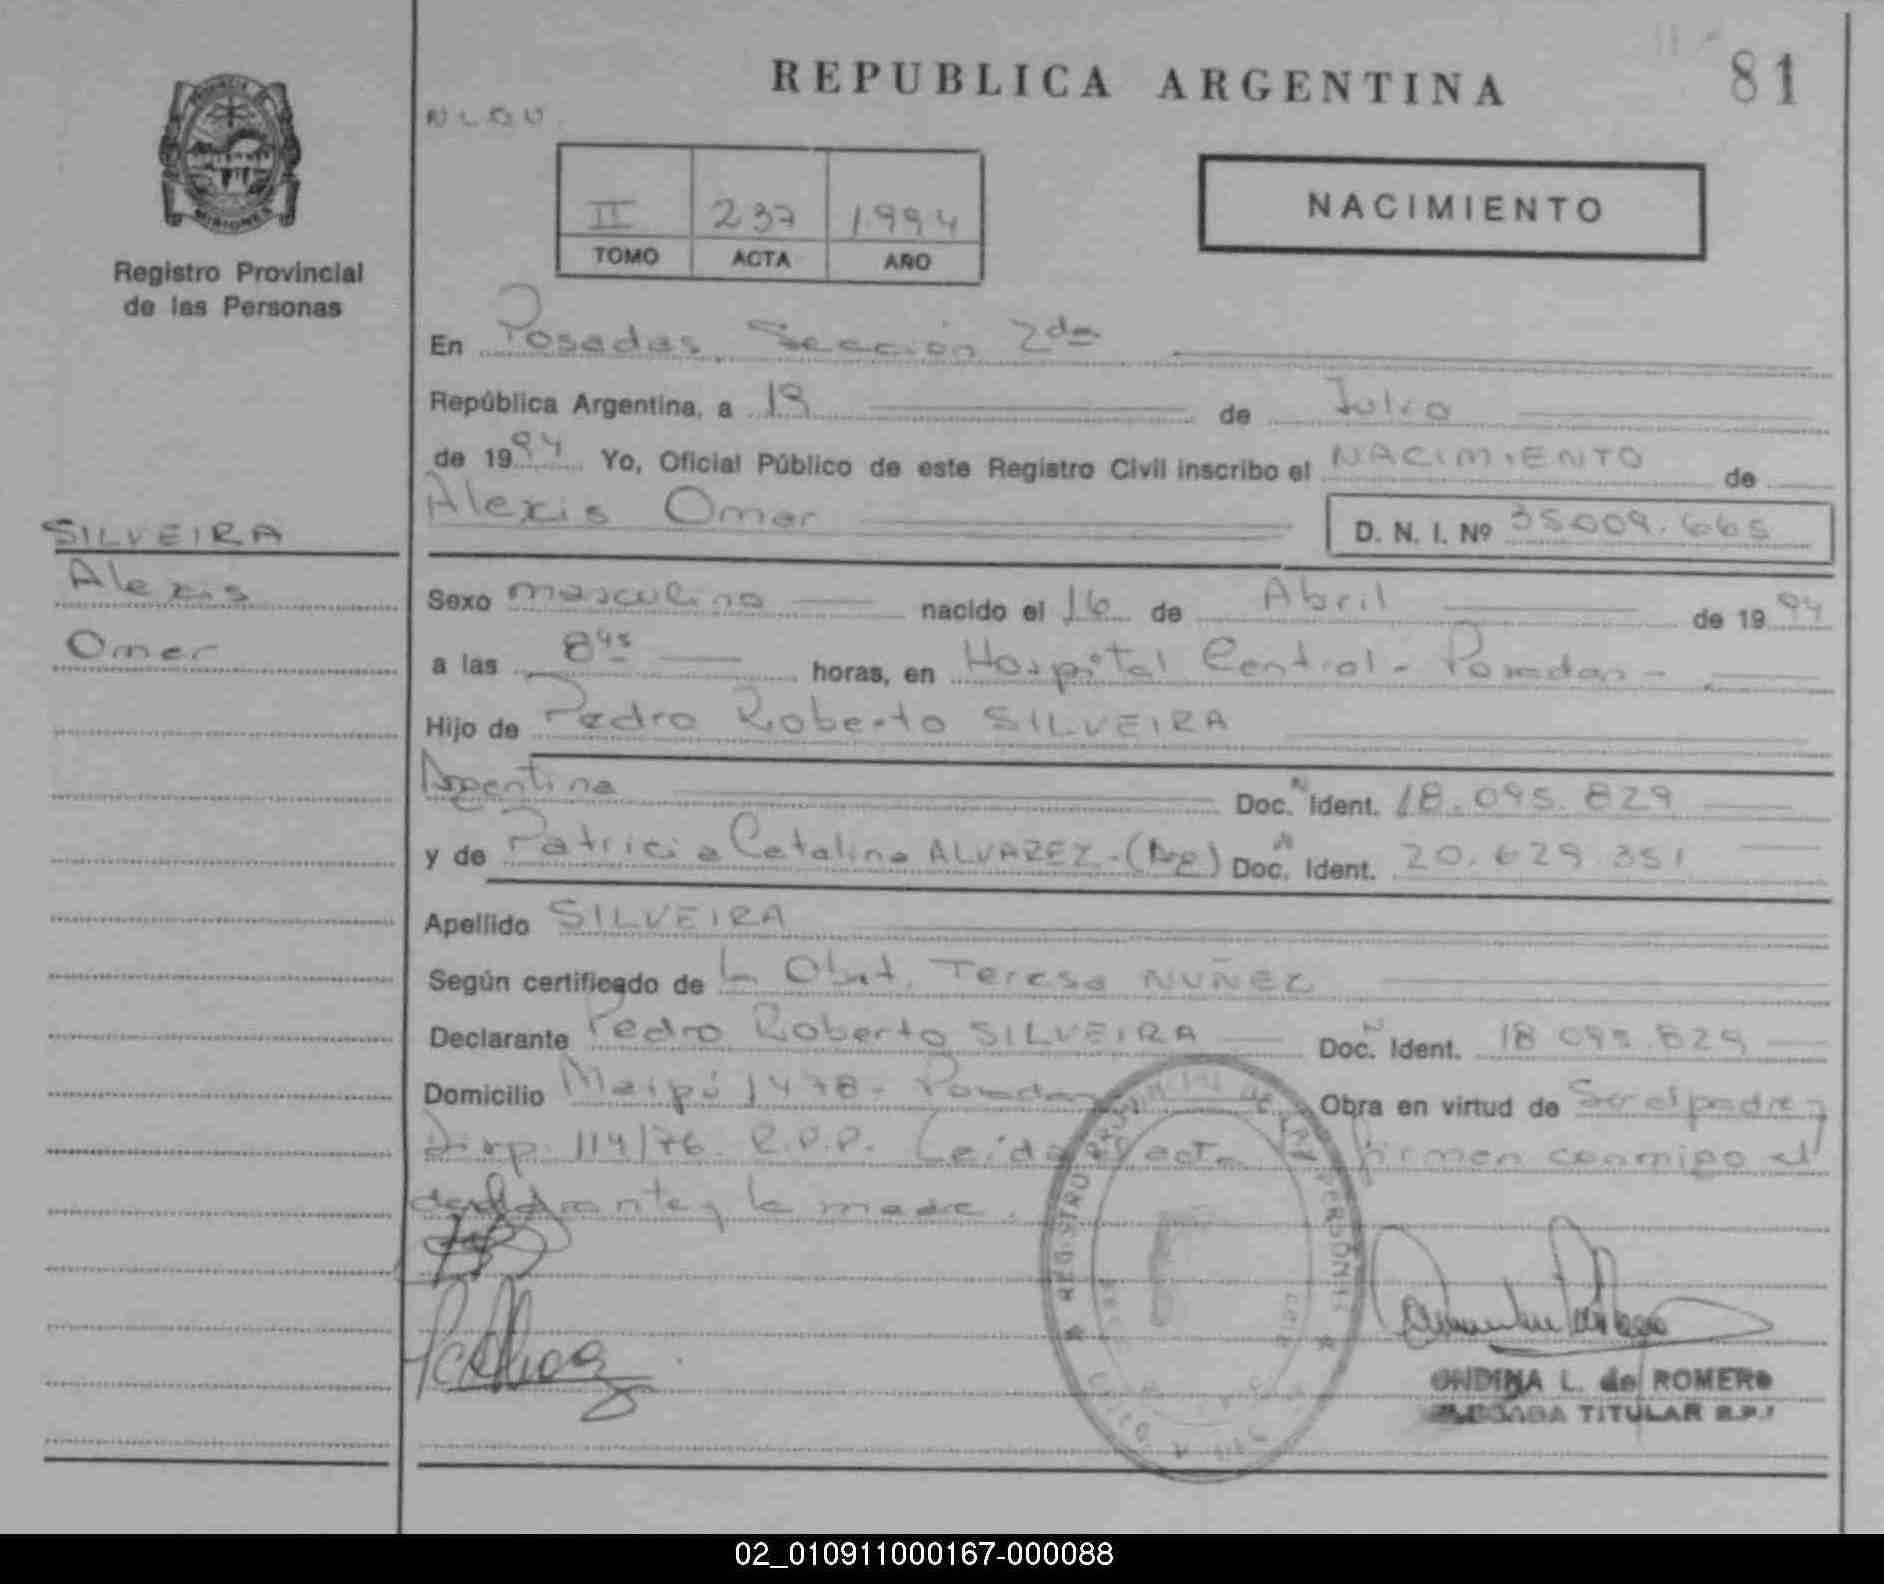 REPUBLICA ARGENTINA
81
PROVINCIA DE
MISIONES
Registro Provincial
de las Personas
II 237 1994
TOMO ACTA AÑO
NACIMIENTO
En Posadas Sección 2da
República Argentina, a 19 de Julio
de 1994 Yo, Oficial Público de este Registro Civil inscribo el NACIMIENTO de
Alexis Omar D. N. I. Nº 35009.665
SILVEIRA
Alexis
Omar
Sexo masculino nacido el 16 de Abril de 1994
a las 8 45 horas, en Hospital Central - Posadas -
Hijo de Pedro Roberto SILVEIRA
Argentina Doc. N Ident. 18.095.829
y de Patricia Catalina ALVAREZ - (Arg) Doc. N Ident. 20.629.351
Apellido SILVEIRA
Según certificado de la Obst. Teresa NUÑEZ
Declarante Pedro Roberto SILVEIRA Doc. N Ident. 18 095.829
Domicilio Maipú 1478 - Posadas Obra en virtud de Ser el padre y
Disp. 114/76. R.P.P. Leída acta firman conmigo el
declarante y la madre.
REGISTRO PROVINCIAL DE LAS PERSONAS
ONDINA L. de ROMERO
TITULAR R.P.
02_010911000167-000088